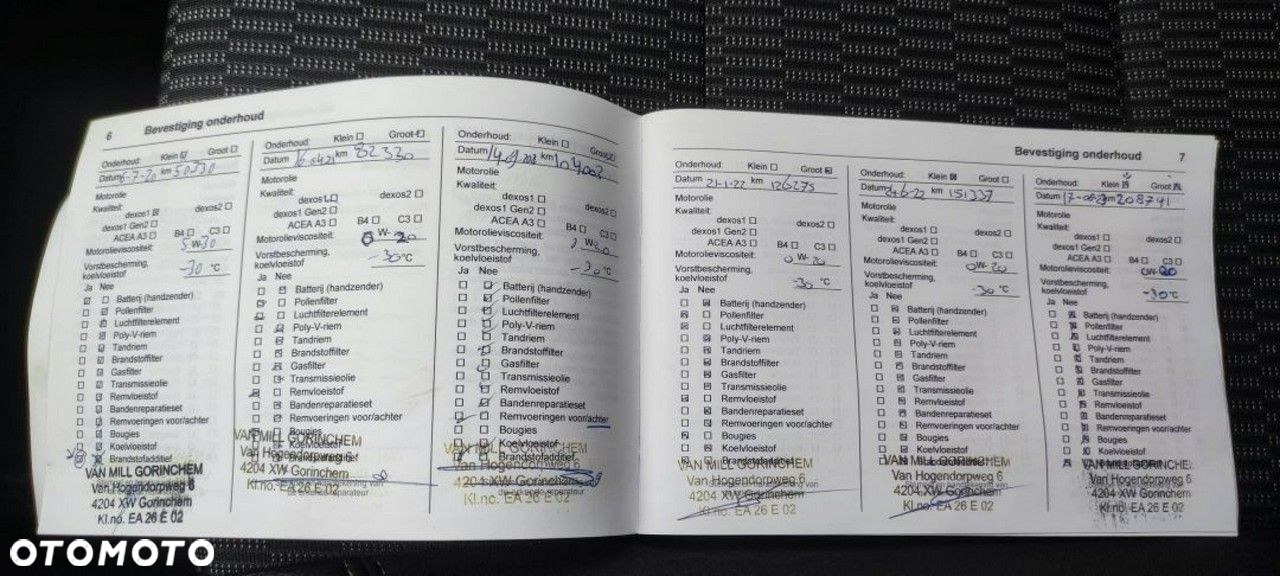 6 Bevestiging onderhoud
Onderhoud: Klein Groot
Datum 6-7-20 km 50930
Motorolie
Kwaliteit:
dexos1 dexos2
dexos1 Gen2
ACEA A3 B4 C3
Motorolieviscositeit:
5 W-30
Vorstbescherming,
koelvloeistof -30 °C
Ja Nee
Batterij (handzender)
Pollenfilter
Luchtfilterelement
Poly-V-riem
Tandriem
Brandstoffilter
Gasfilter
Transmissieolie
Remvloeistof
Bandenreparatieset
Remvoeringen voor/achter
Bougies
Koelvloeistof
Brandstofadditief
VAN MILL GORINCHEM
Van Hogendorpweg 6
4204 XW Gorinchem
Kl.no. EA 26 E 02
Onderhoud: Klein Groot
Datum km 82330
Motorolie
Kwaliteit:
dexos1 dexos2
dexos1 Gen2
ACEA A3 B4 C3
Motorolieviscositeit:
0 W-20
Vorstbescherming,
koelvloeistof -30 °C
Ja Nee
Batterij (handzender)
Pollenfilter
Luchtfilterelement
Poly-V-riem
Tandriem
Brandstoffilter
Gasfilter
Transmissieolie
Remvloeistof
Bandenreparatieset
Remvoeringen voor/achter
Bougies
Koelvloeistof
VAN MILL GORINCHEM
Van Hogendorpweg 6
4204 XW Gorinchem
Kl.no. EA 26 E 02
Onderhoud: Klein Groot
Datum km 104002
Motorolie
Kwaliteit:
dexos1 dexos2
dexos1 Gen2
ACEA A3 B4 C3
Motorolieviscositeit:
W-20
Vorstbescherming,
koelvloeistof -30 °C
Ja Nee
Batterij (handzender)
Pollenfilter
Luchtfilterelement
Poly-V-riem
Tandriem
Brandstoffilter
Gasfilter
Transmissieolie
Remvloeistof
Bandenreparatieset
Remvoeringen voor/achter
Bougies
Koelvloeistof
Brandstofadditief
VAN MILL GORINCHEM
Van Hogendorpweg 6
4204 XW Gorinchem
Kl.no. EA 26 E 02
Bevestiging onderhoud 7
Onderhoud: Klein Groot
Datum 21-1-22 km 126275
Motorolie
Kwaliteit:
dexos1 dexos2
dexos1 Gen2
ACEA A3 B4 C3
Motorolieviscositeit:
0 W-20
Vorstbescherming,
koelvloeistof -30 °C
Ja Nee
Batterij (handzender)
Pollenfilter
Luchtfilterelement
Poly-V-riem
Tandriem
Brandstoffilter
Gasfilter
Transmissieolie
Remvloeistof
Bandenreparatieset
Remvoeringen voor/achter
Bougies
Koelvloeistof
Brandstofadditief
VAN MILL GORINCHEM
Van Hogendorpweg 6
4204 XW Gorinchem
Kl.no. EA 26 E 02
Onderhoud: Klein Groot
Datum km 151337
Motorolie
Kwaliteit:
dexos1 dexos2
dexos1 Gen2
ACEA A3 B4 C3
Motorolieviscositeit:
0 W-20
Vorstbescherming,
koelvloeistof -30 °C
Ja Nee
Batterij (handzender)
Pollenfilter
Luchtfilterelement
Poly-V-riem
Tandriem
Brandstoffilter
Gasfilter
Transmissieolie
Remvloeistof
Bandenreparatieset
Remvoeringen voor/achter
Bougies
Koelvloeistof
VAN MILL GORINCHEM
Van Hogendorpweg 6
4204 XW Gorinchem
Kl.no. EA 26 E 02
Onderhoud: Klein Groot
Datum km 208741
Motorolie
Kwaliteit:
dexos1 dexos2
dexos1 Gen2
ACEA A3 B4 C3
Motorolieviscositeit:
0 W-20
Vorstbescherming,
koelvloeistof -30 °C
Ja Nee
Batterij (handzender)
Pollenfilter
Luchtfilterelement
Poly-V-riem
Tandriem
Brandstoffilter
Gasfilter
Transmissieolie
Remvloeistof
Bandenreparatieset
Remvoeringen voor/achter
Bougies
Koelvloeistof
VAN MILL GORINCHE
Van Hogendorpweg 6
4204 XW Gorinchem
Kl.no. EA 26 E 02
OTOMOTO